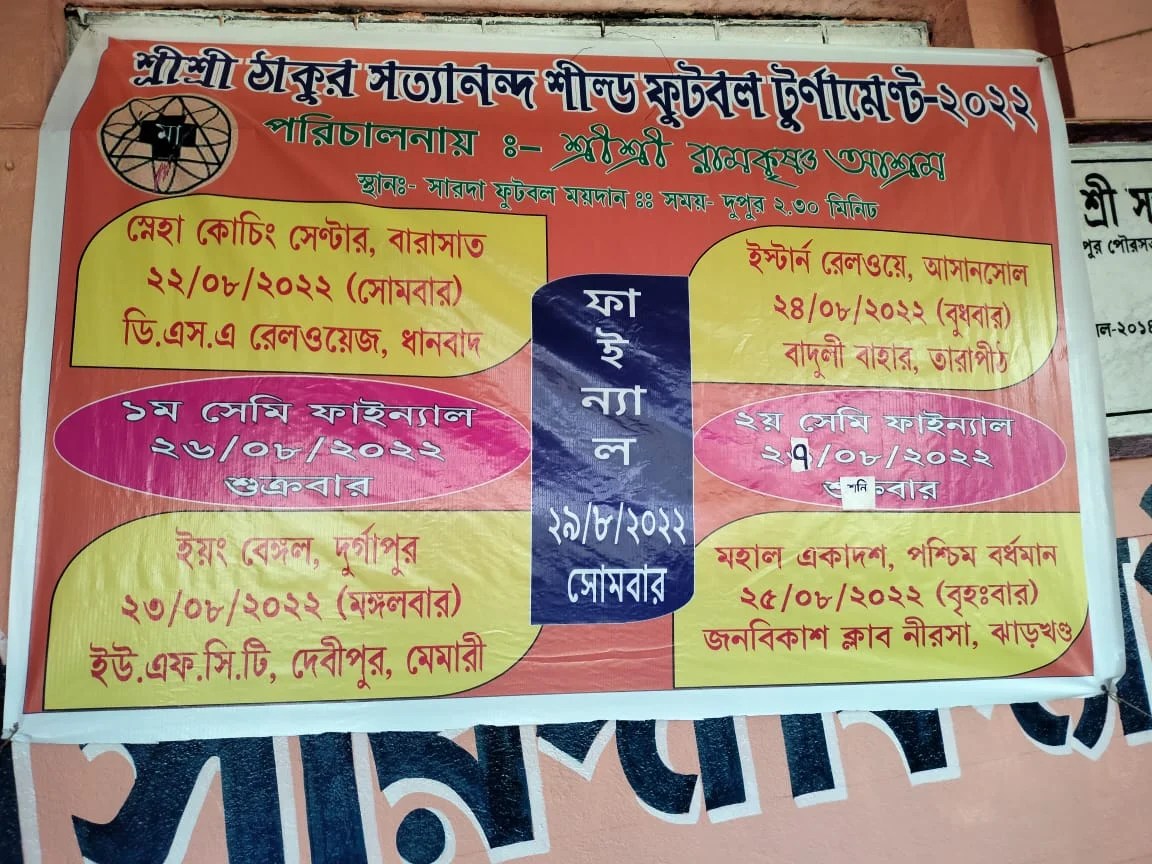 শ্রীশ্রী ঠাকুর সত্যানন্দ শীল্ড ফুটবল টুর্ণামেণ্ট-২০২২
মা
পরিচালনায় ঃ– শ্রীশ্রী রামকৃষ্ণ আশ্রম
স্থানঃ- সারদা ফুটবল ময়দান ঃঃ সময়- দুপুর ২.৩০ মিনিট
স্নেহা কোচিং সেণ্টার, বারাসাত
২২/০৮/২০২২ (সোমবার)
ডি.এস.এ রেলওয়েজ, ধানবাদ
১ম সেমি ফাইন্যাল
২৬/০৮/২০২২
শুক্রবার
ইয়ং বেঙ্গল, দুর্গাপুর
২৩/০৮/২০২২ (মঙ্গলবার)
ইউ.এফ.সি.টি, দেবীপুর, মেমারী
ফা
ই
ন্যা
ল
২৯/৮/২০২২
সোমবার
ইস্টার্ন রেলওয়ে, আসানসোল
২৪/০৮/২০২২ (বুধবার)
বাদুলী বাহার, তারাপীঠ
২য় সেমি ফাইন্যাল
২৭/০৮/২০২২
শনিবার
মহাল একাদশ, পশ্চিম বর্ধমান
২৫/০৮/২০২২ (বৃহঃবার)
জনবিকাশ ক্লাব নীরসা, ঝাড়খণ্ড
শ্রী